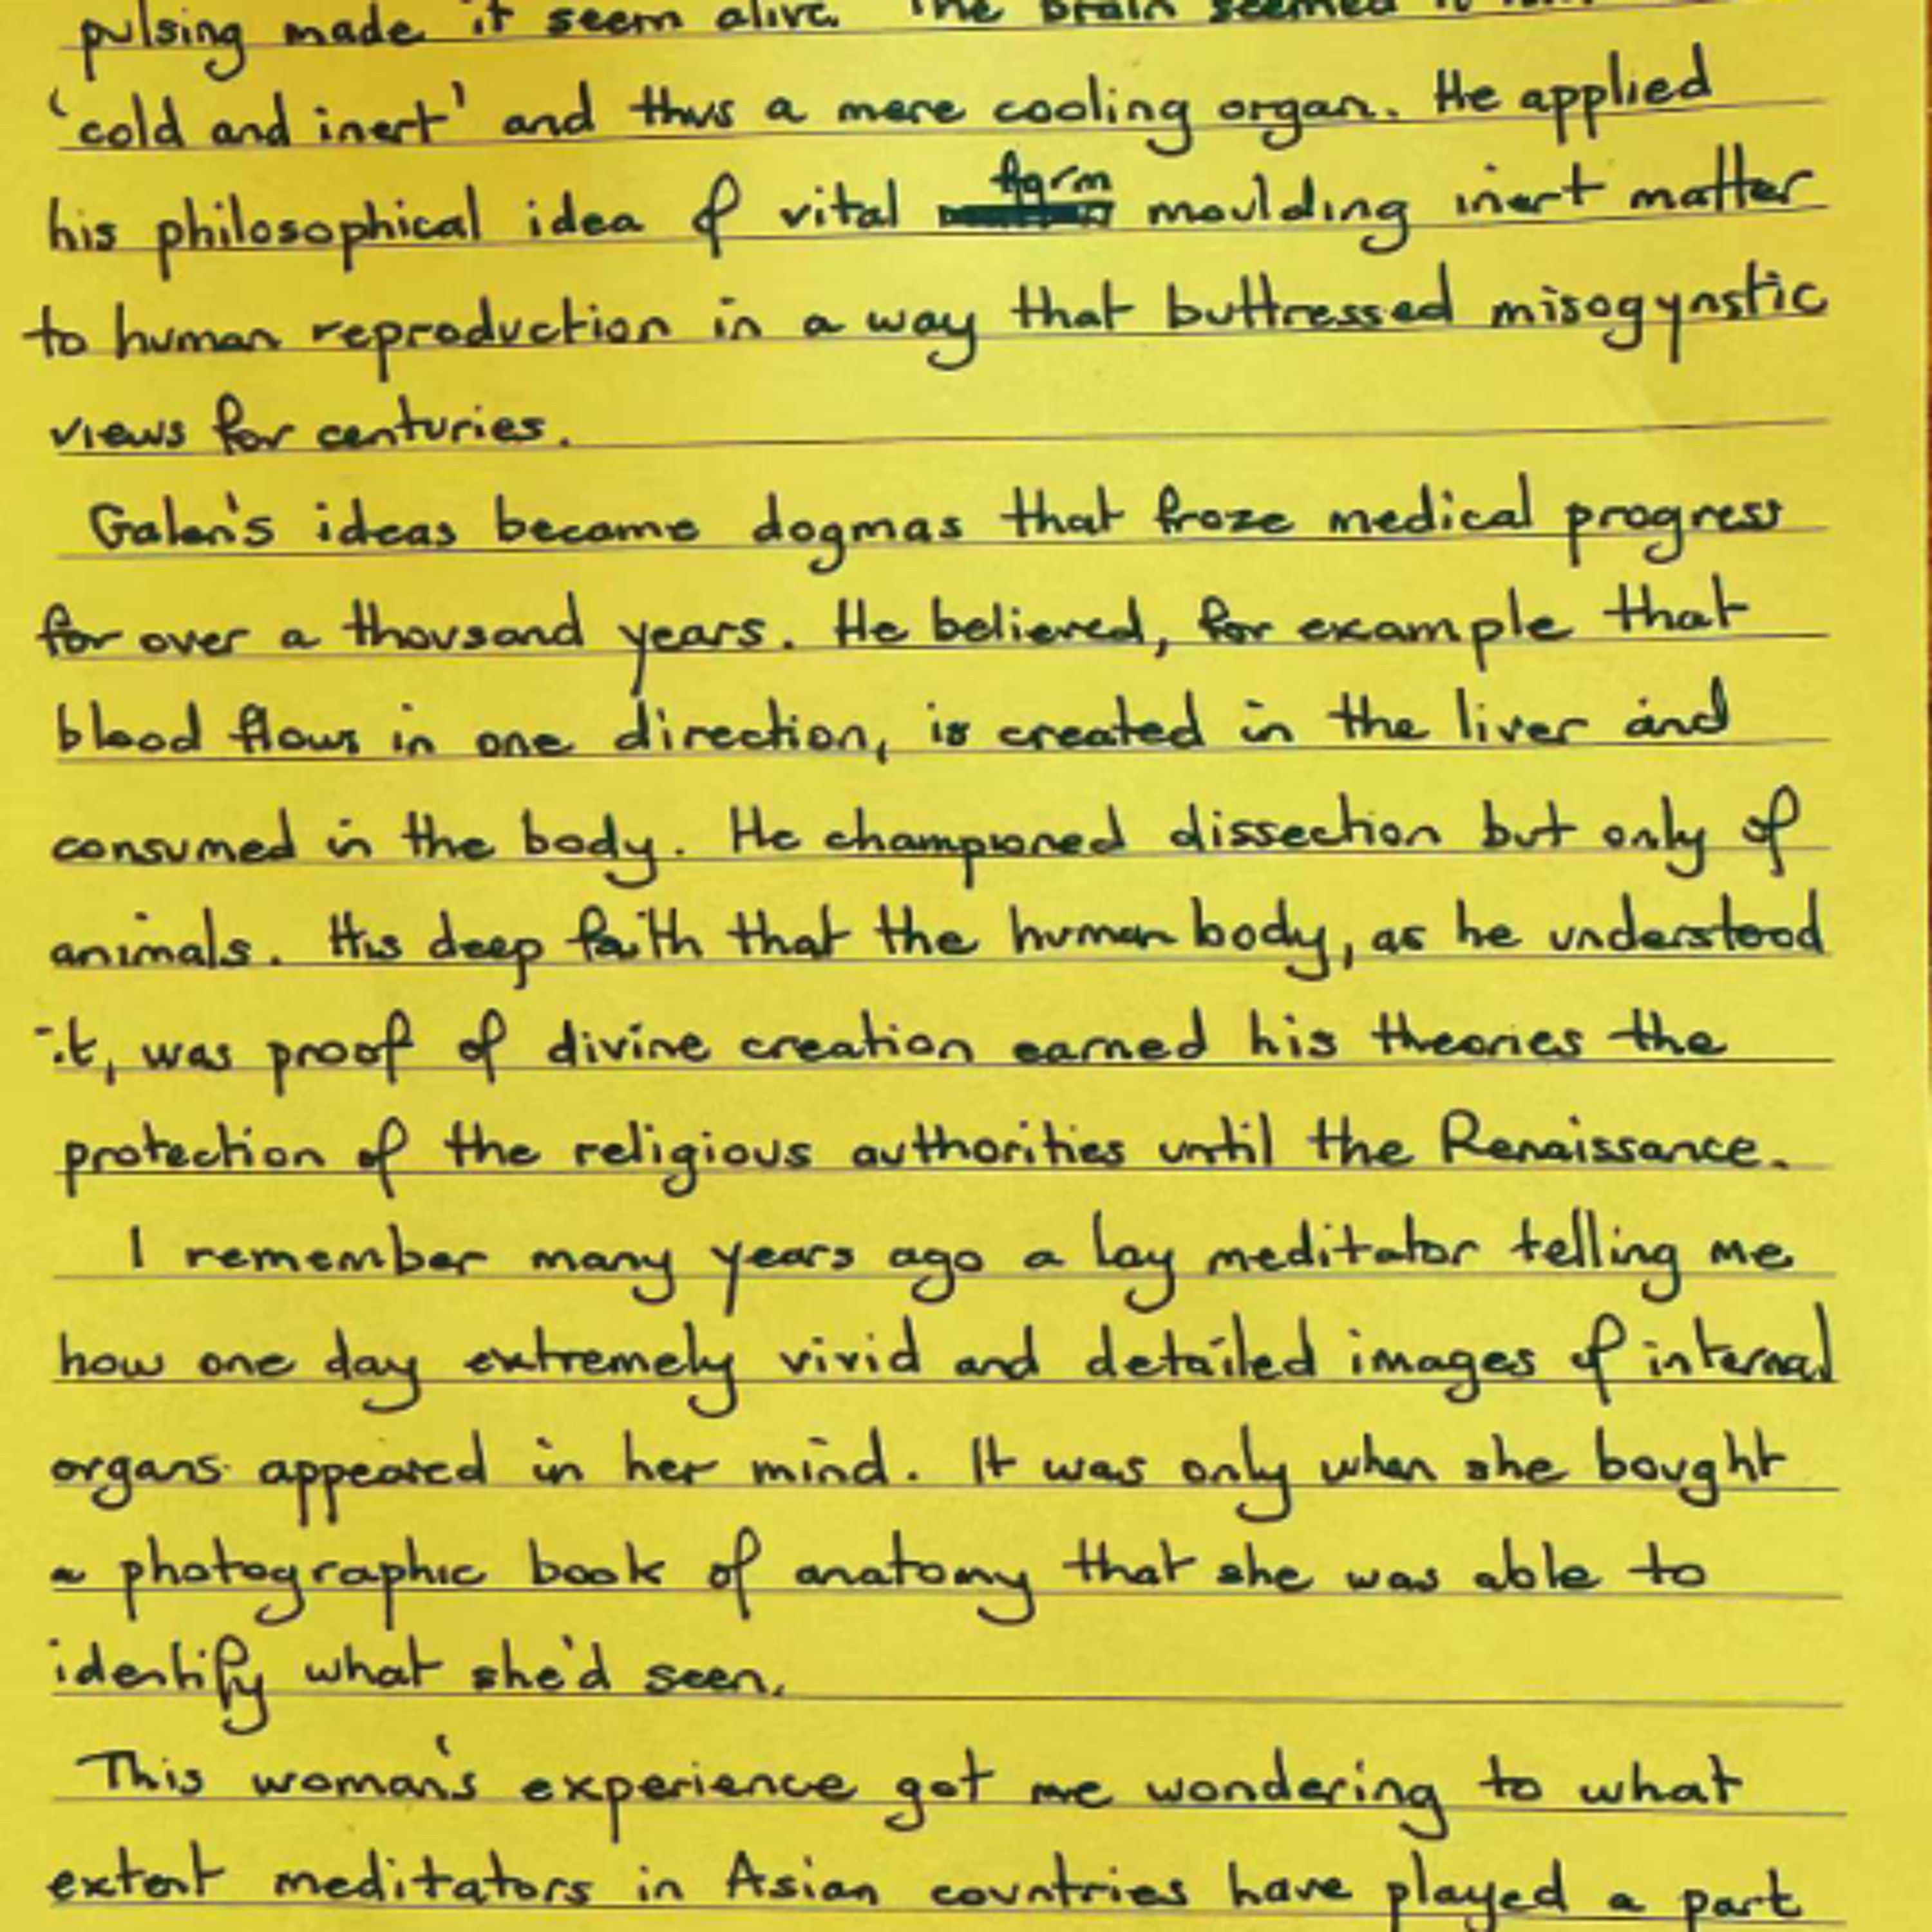 pulsing made it seem alive. The brain seemed to him
'cold and inert' and thus a mere cooling organ. He applied
his philosophical idea of vital form moulding inert matter
to human reproduction in a way that buttressed misogynstic
views for centuries.
Galen's ideas became dogmas that froze medical progress
for over a thousand years. He believed, for example that
blood flows in one direction, is created in the liver and
consumed in the body. He championed dissection but only of
animals. His deep faith that the human body, as he understood
it, was proof of divine creation earned his theories the
protection of the religious authorities until the Renaissance.
I remember many years ago a lay meditator telling me
how one day extremely vivid and detailed images of internal
organs appeared in her mind. It was only when she bought
a photographic book of anatomy that she was able to
identify what she'd seen.
This woman's experience got me wondering to what
extent meditators in Asian countries have played a part